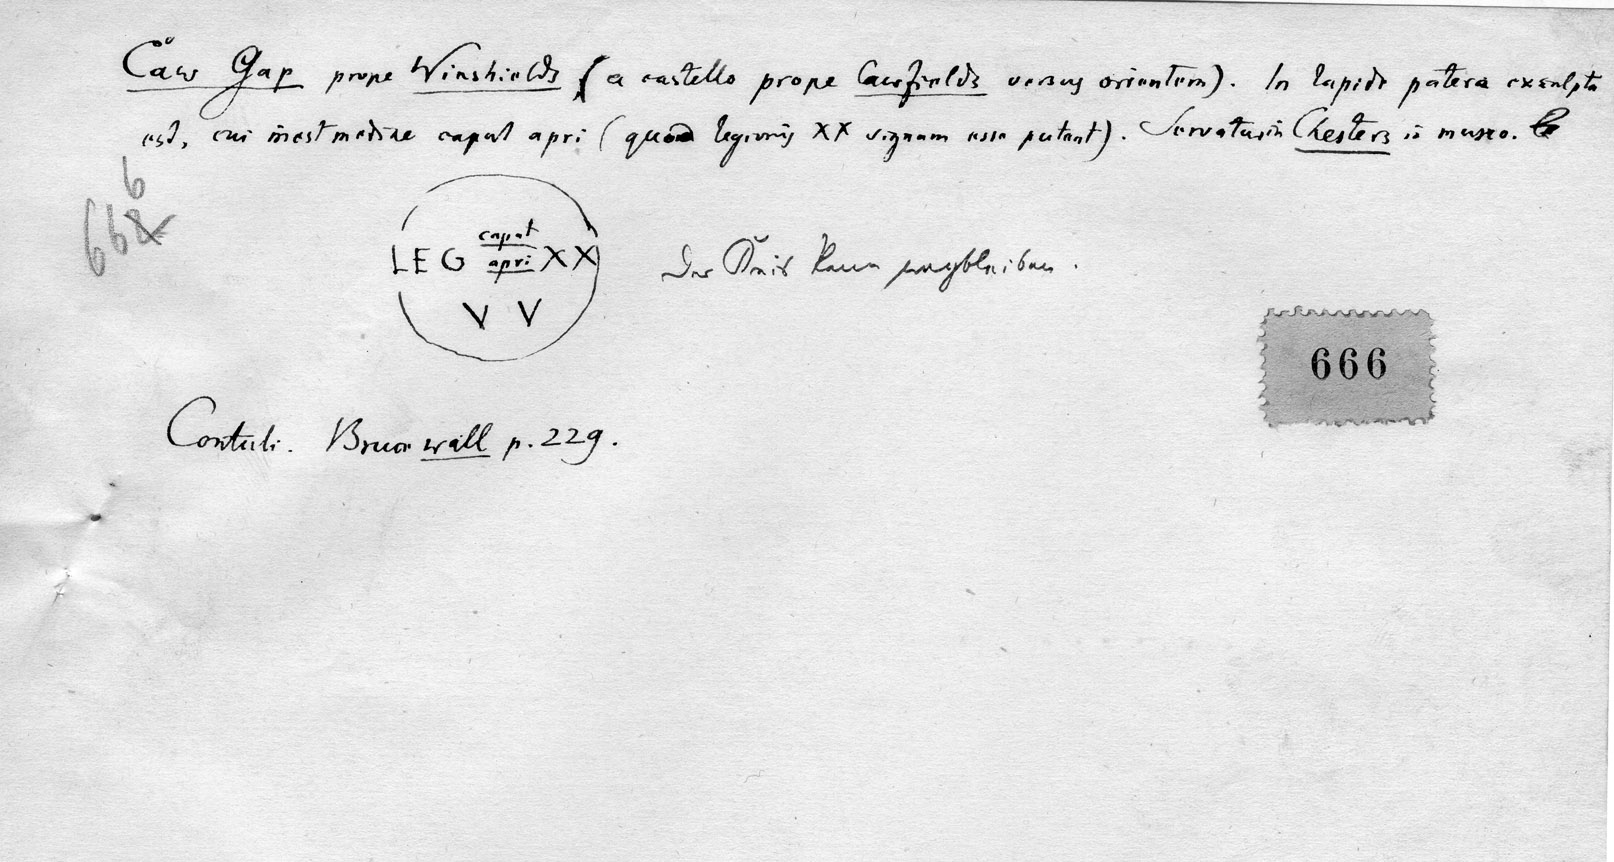 Caw Gap prope Winshields (a castello prope Cawfields versus orientem). In lapide patera exsculpta
est, cui inest mediae caput apri (quod legionis XX signum esse putant). Servatur in Chesters in museo.
6
662
caput
LEG apri XX
V V
Der Kreis kann wegbleiben.
666
Contuli. Bruce wall p. 229.